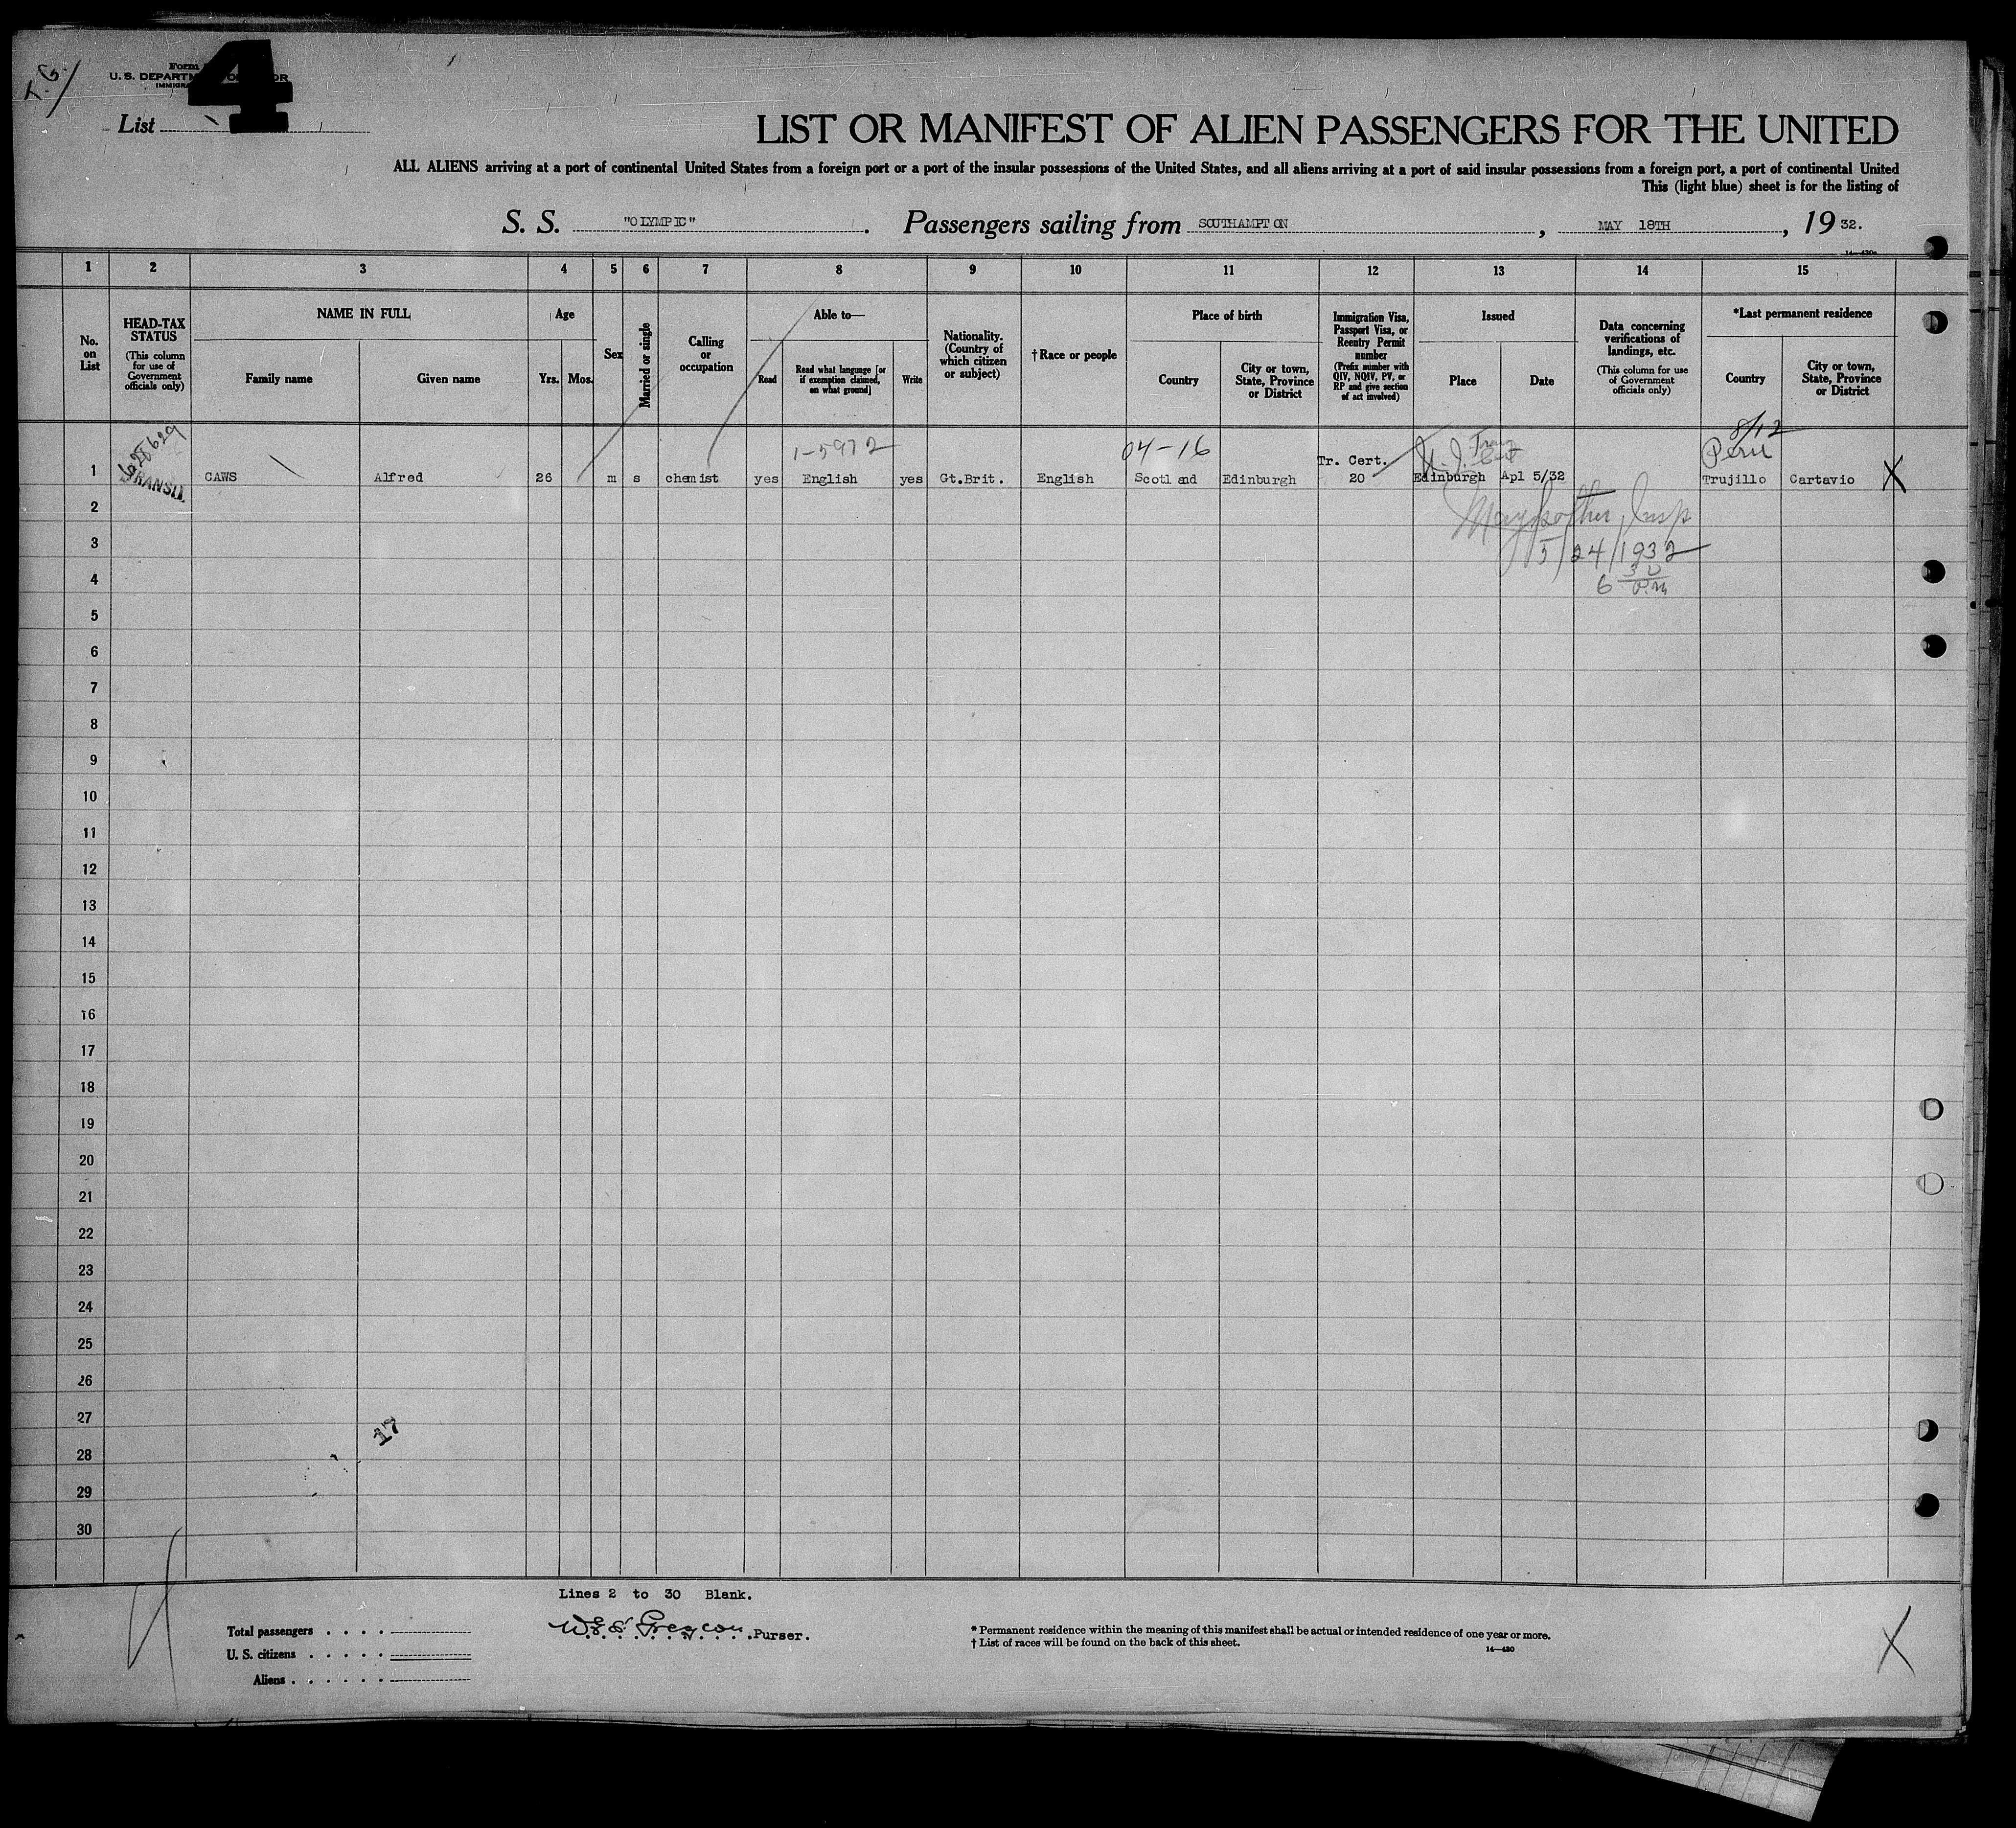 T.G.
Form
U. S. DEPARTM
IMMIGRA
4
List
LIST OR MANIFEST OF ALIEN PASSENGERS FOR THE UNITED
ALL ALIENS arriving at a port of continental United States from a foreign port or a port of the insular possessions of the United States, and all aliens arriving at a port of said insular possessions from a foreign port, a port of continental United
This (light blue) sheet is for the listing of
S. S. "OLYMPIC" . Passengers sailing from SOUTHAMPTON , MAY 18TH , 19 32.
1 2 3 4 5 6 7 8 9 10 11 12 13 14 15
No. on List
HEAD-TAX STATUS
(This column for use of Government officials only)
NAME IN FULL
Family name Given name
Age
Yrs. Mos.
Sex
Married or single
Calling or occupation
Able to—
Read
Read what language [or if exemption claimed, on what ground]
Write
Nationality. (Country of which citizen or subject)
†Race or people
Place of birth
Country
City or town, State, Province or District
Immigration Visa, Passport Visa, or Reentry Permit number
(Prefix number with QIV, NQIV, PV, or RP and give section of act involved)
Issued
Place Date
Data concerning verifications of landings, etc.
(This column for use of Government officials only)
*Last permanent residence
Country
City or town, State, Province or District
628629 1-5972 04-16 8/12
TRANSIT Tr. Cert. Peru
1 CAWS Alfred 26 m s chemist yes English yes Gt.Brit. English Scotland Edinburgh 20 Edinburgh Apl 5/32 Trujillo Cartavio X
2 Insp
3 5/24/1932
4 6 30 P.M
5
6
7
8
9
10
11
12
13
14
15
16
17
18
19
20
21
22
23
24
25
26
27
17
28
29
30
Lines 2 to 30 Blank.
Total passengers
Purser.
U. S. citizens
Aliens
* Permanent residence within the meaning of this manifest shall be actual or intended residence of one year or more.
† List of races will be found on the back of this sheet.
14—430
X